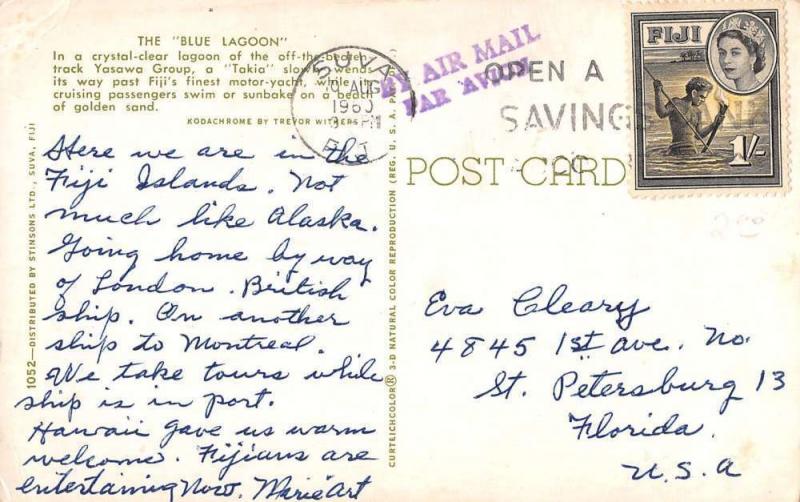 THE "BLUE LAGOON"
In a crystal-clear lagoon of the off-the-beaten
track Yasawa Group, a "Takia" slowly wends
its way past Fiji's finest motor-yacht, while its
cruising passengers swim or sunbake on a beach
of golden sand.
KODACHROME BY TREVOR WITHERS
Here we are in the
Fiji Islands. Not
much like Alaska.
Going home by way
of London. British
ship. On another
ship to Montreal.
We take tours while
ship is in port.
Hawaii gave us warm
welcome. Fijians are
entertaining Now. Marie Art
1052—DISTRIBUTED BY STINSONS LTD., SUVA, FIJI
CURTEICHCOLOR® 3-D NATURAL COLOR REPRODUCTION (REG. U.S.A.
SUVA
AUG
1960
PM
FIJI
BY AIR MAIL
PAR AVION
OPEN A
SAVINGS BANK
POST CARD
FIJI
1/-
2.00
Eva Cleary
4845 1st Ave. No.
St. Petersburg 13
Florida.
U.S.A